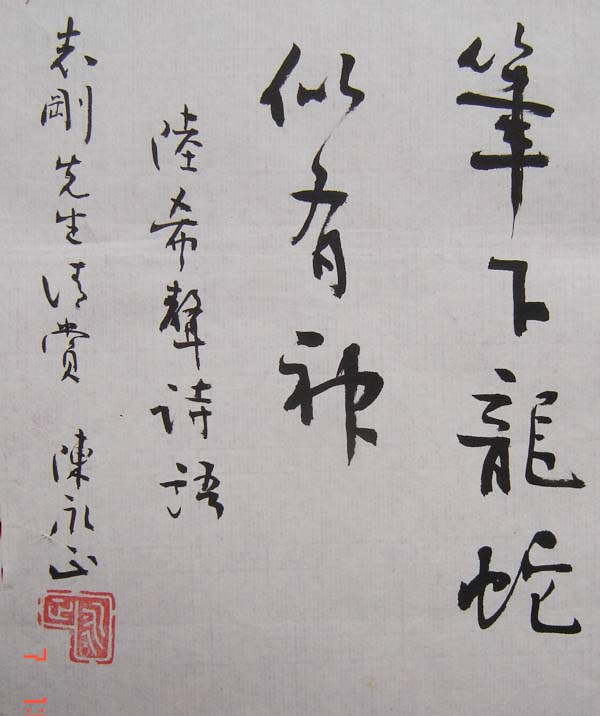 筆下龍蛇
似有神
陸希聲詩語
志剛先生清賞 陳永正
永正
7 1: